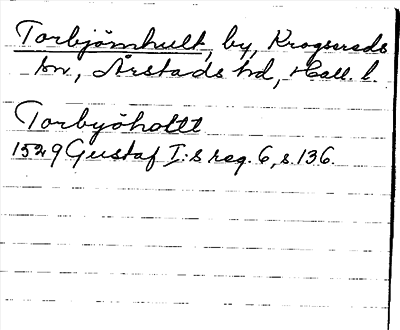 Torbjörnhult, by, Krogsereds
sn., Årstads hd, Hall. l.
Torbyöholtt
1529 Gustaf I:s reg. 6, s. 136.